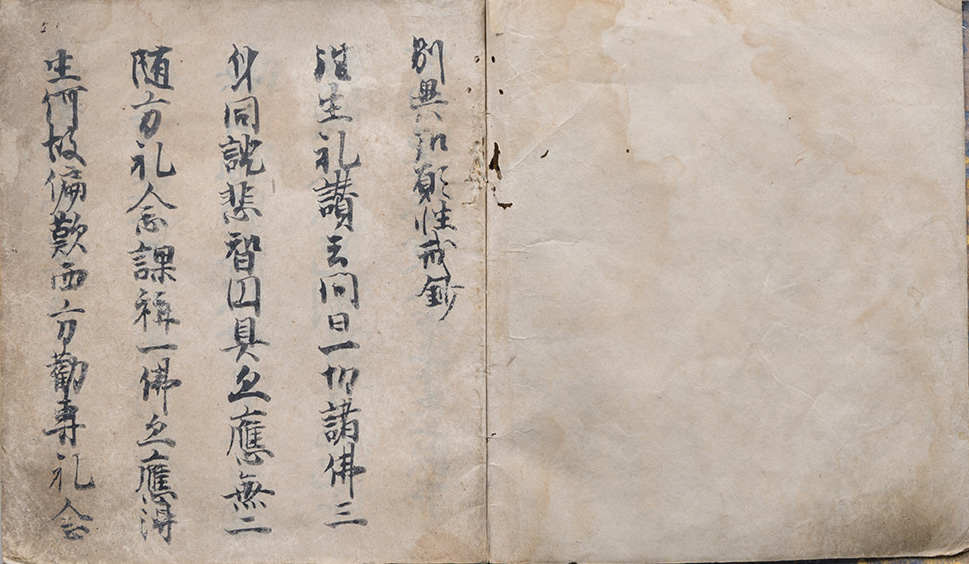 別異弘願性戒鈔
往生礼讃云問曰一切諸佛三
身同説悲智円具亦應無二
随方礼念課稱一佛亦應得
生何故偏歎西方勸専礼念